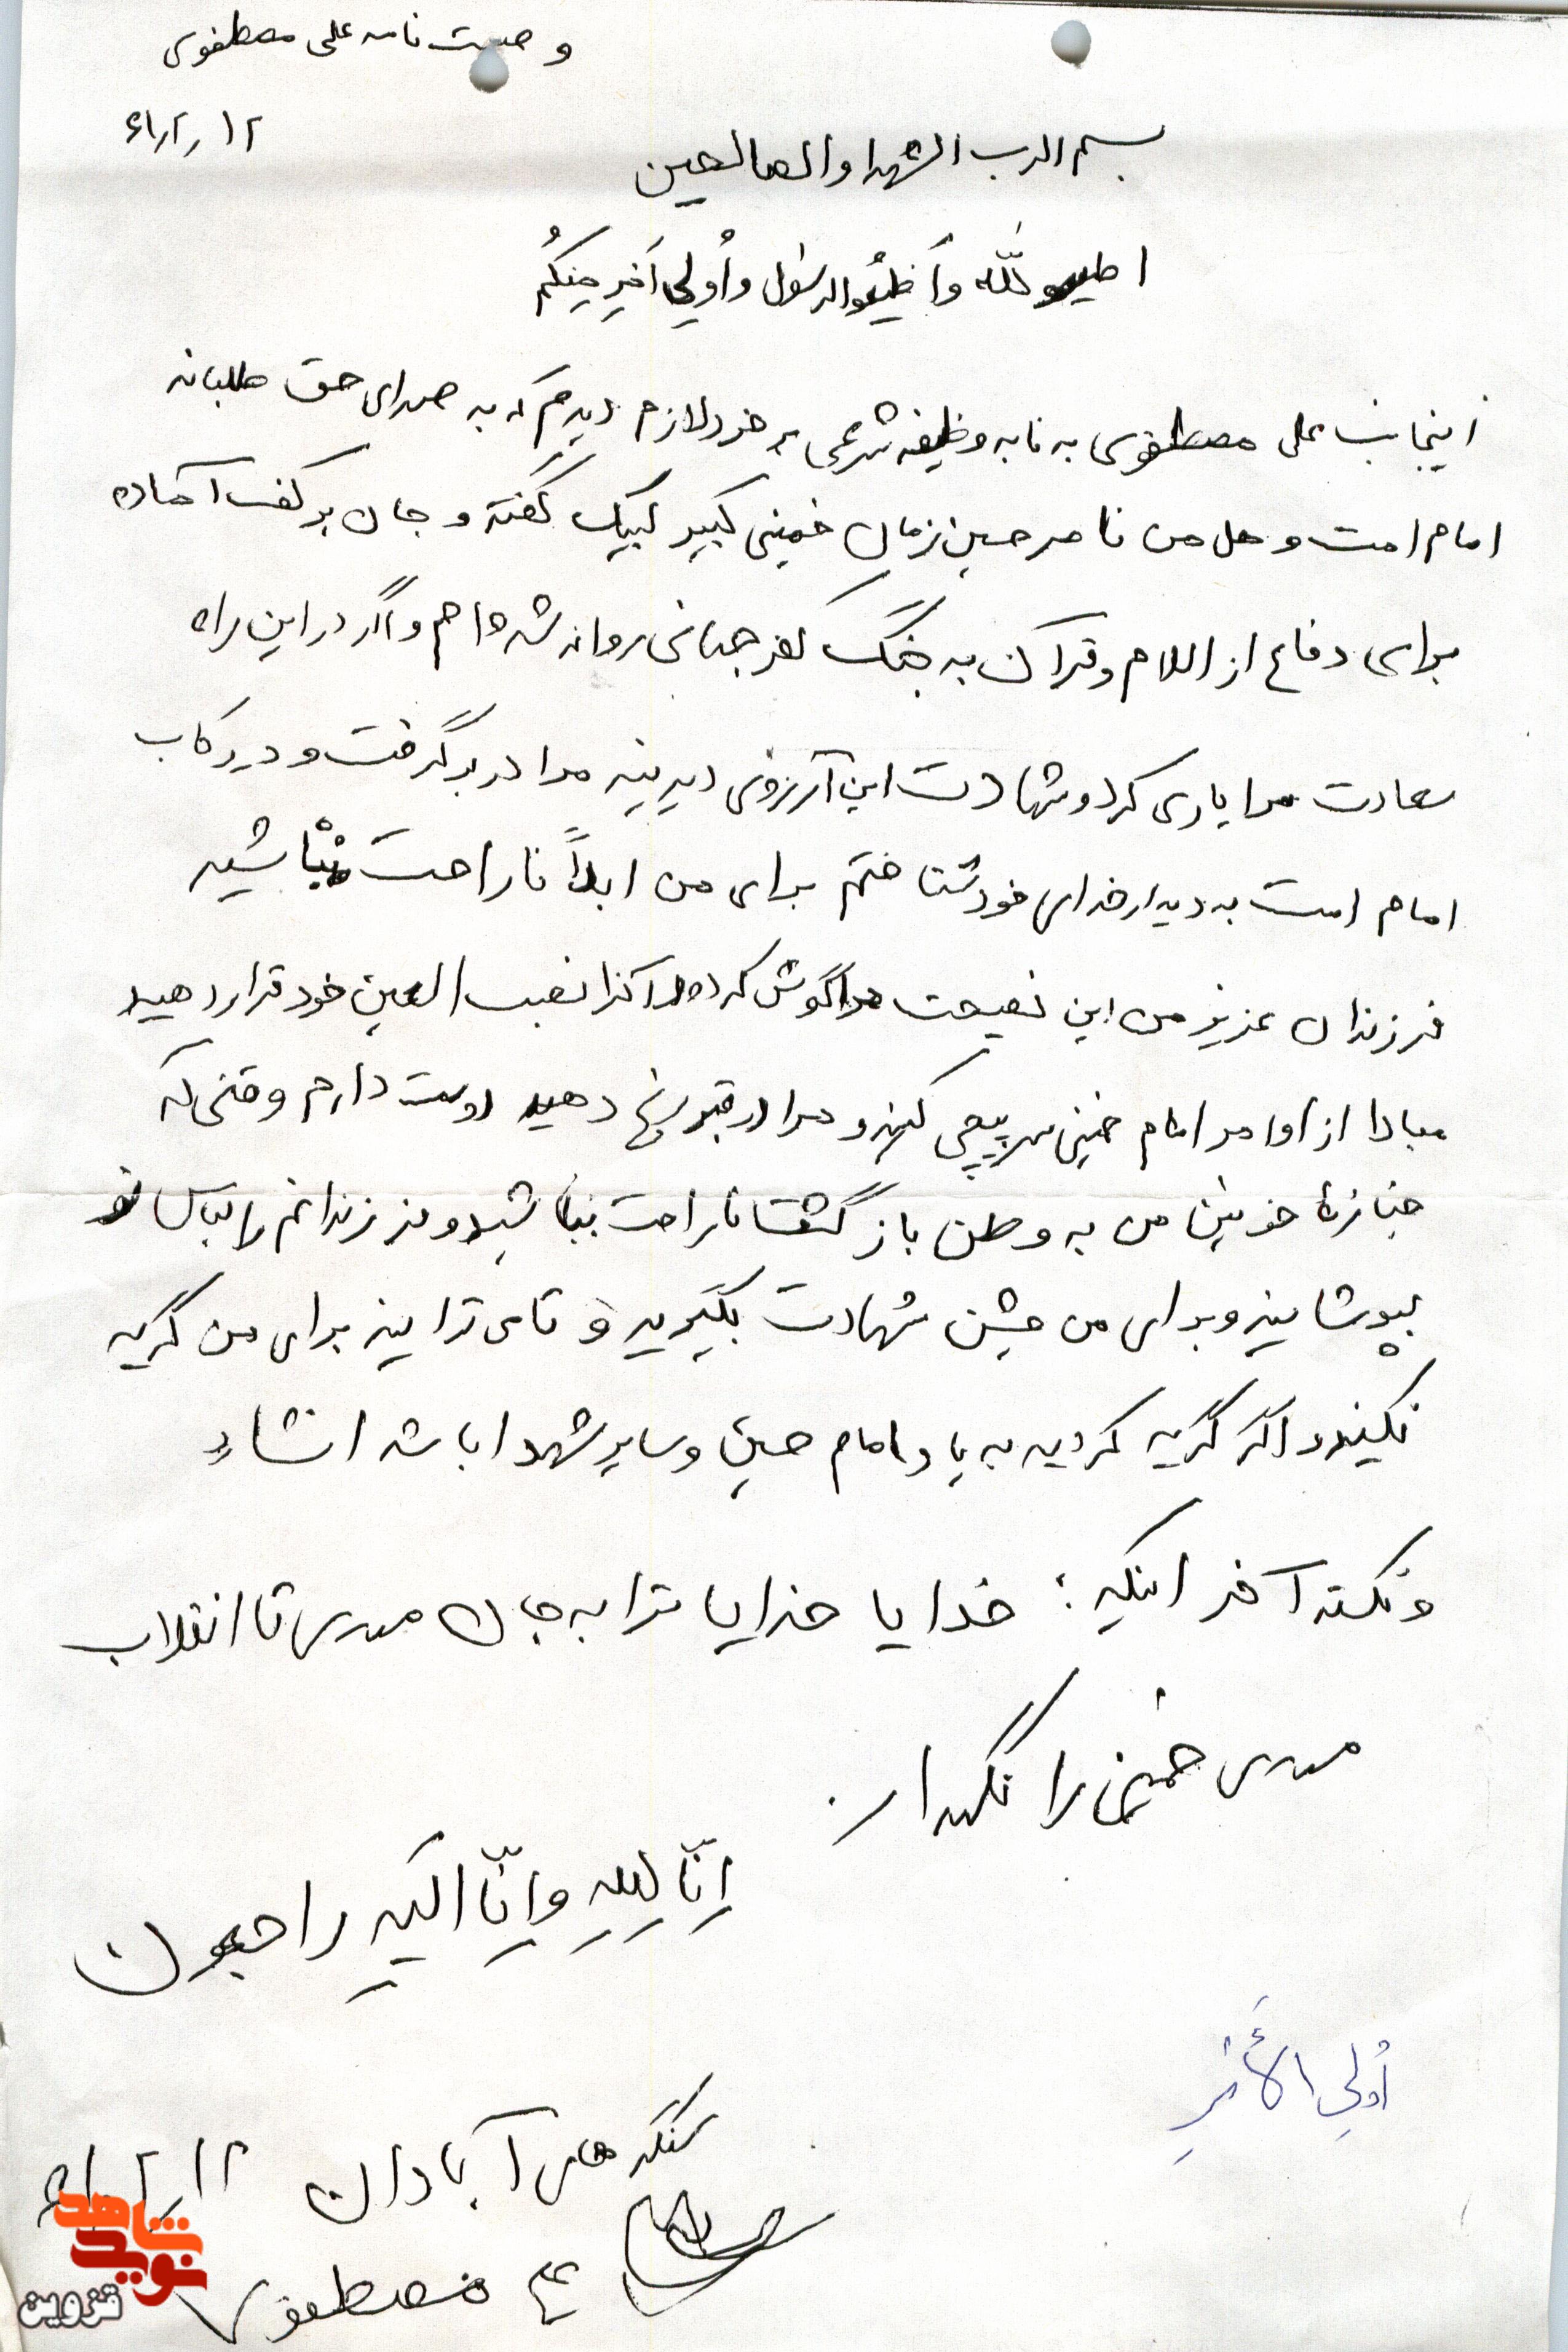 وصیت نامه علی مصطفوی
۶۱٫۲٫۱۲
بسم الرب الشهدا والصالحین
اطیعوالله وَاَطیعُوالرسُول واُولِی اَمرِ مِنکُم
اینجانب علی مصطفوی به نا به وظیفه شرعی خود لازم دیدم که به صدای حق طلبانه
امام امت و هل من ناصر حسین زمان خمینی کبیر لبیک گفته و جان بر کف آماده
برای دفاع از اسلام و قرآن به جنگ کفر جهانی روانه شده ام و اگر در این راه
سعادت مرا یاری کرد و شهادت این آرزوی دیرینه مرا در بر گرفت و در رکاب
امام امت به دیدار خدای خود شتافتم برای من ابداً ناراحت نباشید
فرزندان عزیز من این نصیحت مرا گوش کرده و آنرا نصب العین خود قرار دهید
مبادا از اوامر امام خمینی سرپیچی کنید و مرا در قبر رنج دهید دوست دارم وقتی که
جنازهٔ خونین من به وطن بازگشت ناراحت نباشید و فرزندانم را لباس نو
بپوشانید و برای من جشن شهادت بگیرید و تا می توانید برای من گریه
نکنید و اگر گریه کردید به یاد امام حسین و سایر شهدا باشد انشاء
و نکته آخر اینکه: خدایا خدایا ترا به جان مهدی تا انقلاب
مهدی خمینی را نگهدار.
اِنّا لِلّٰهِ وَاِنّا اِلَیهِ راجعون
اُولِی الأَمرِ
سنگرهای آبادان ۶۱٫۲٫۱۲
علی مصطفوی
نوید شاهد
قزوین